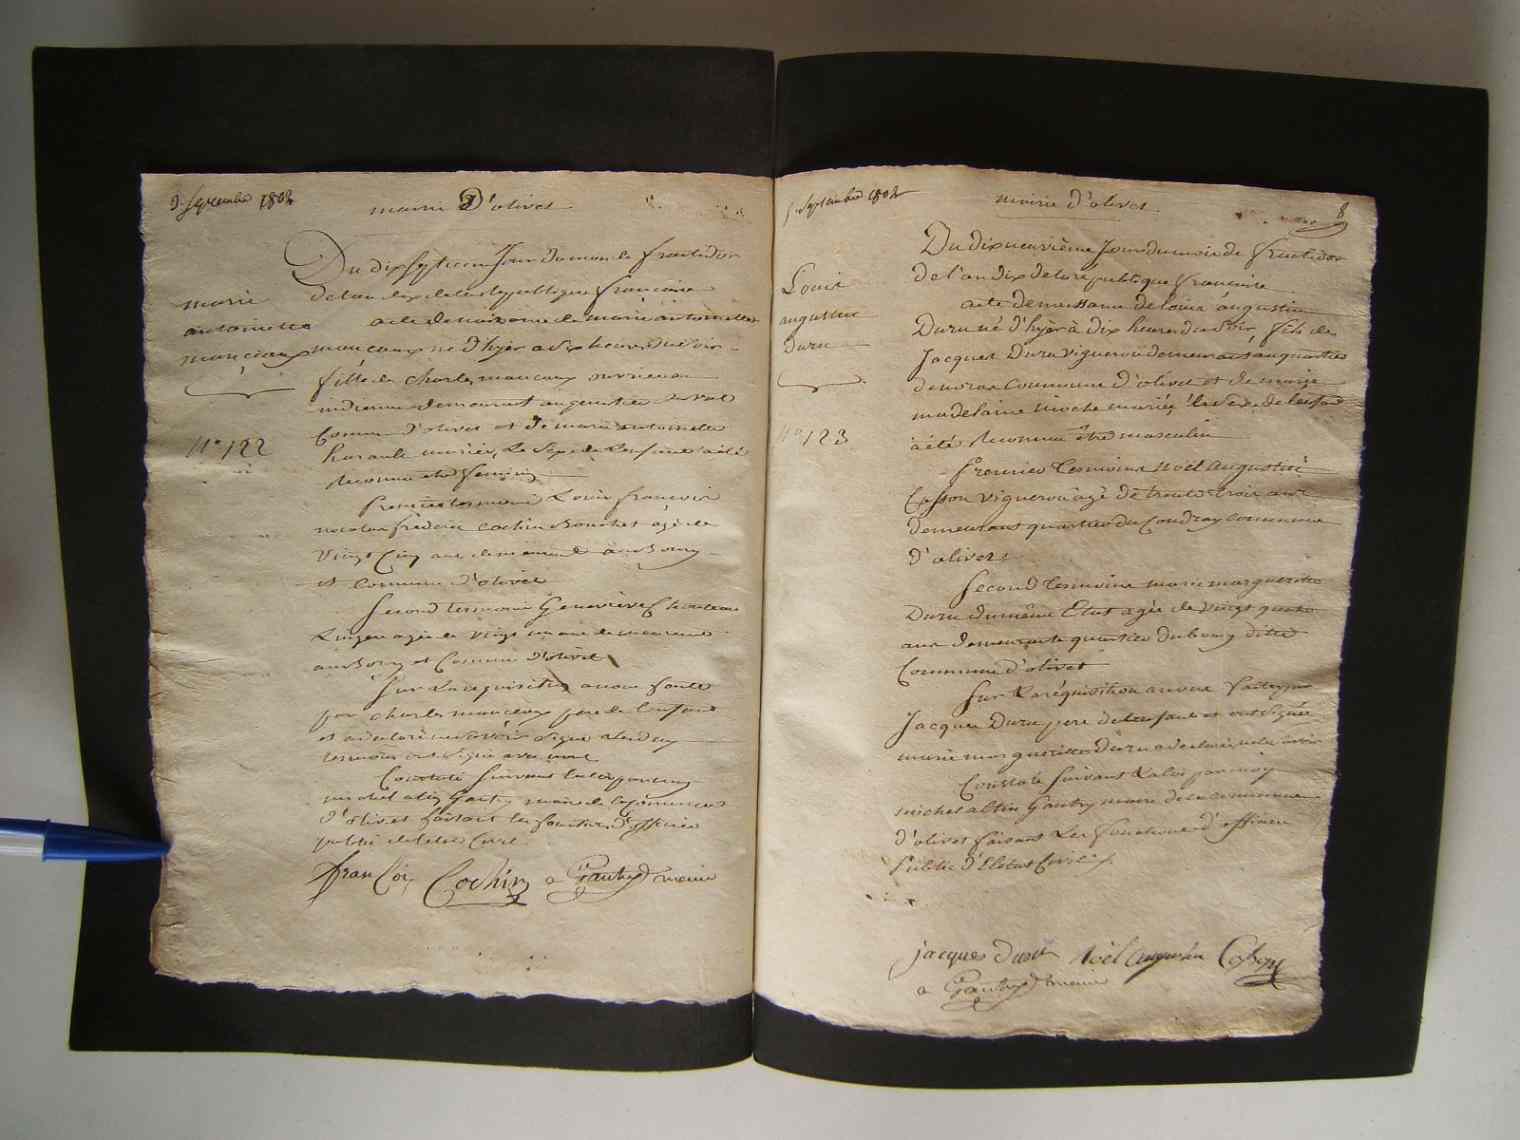 Septembre 1802
mairie d'olivet
Du dix septieme Jour du mois de fructidor
de l'an dix de la Republique francaise
marie
antoinette
manceaux
acte de naissance de marie antoinette
manceaux né d'hyer a six heures du soir
fille de charles manceaux ouvrier en
indienne demeurant au quartier du val
Commune d'olivet et de marie antoinette
mariés, Le Sexe de L'enfant a été
reconnu etre feminin
N° 122
Premier temoin Louis francois
nicolas frederic cochin Bouchet agé de
vingt Cinq ans demeurant au Bourg
et commune d'olivet
Second temoin Geneviève
Lingere agée de vingt un ans demeurant
au Bourg et Commune d'olivet
Sur La requisition a nous faitte
par charles manceaux pere de l'enfant
et a declaré ne savoir signer les deux
temoins ont signé avec nous
Constaté suivant la loi par moy
michel altin Gautry maire de la commune
d'olivet faisant les fonctions d'officier
public de l'etat Civil
francois Cochin a Gautry maire
Septembre 1802
mairie d'olivet
8
Du dixneuvième Jour du mois de fructidor
de l'an dix de la republique francaise
Louis
augustin
Duru
acte de naissance de louis augustin
Duru né d'hyer à dix heures du soir, fils de
Jacques Duru vigneron demeurant au quartier
commune d'olivet et de marie
madelaine mariés, le sexe de l'enfant
a été reconnu être masculin
N° 123
Premier temoins noël augustin
Cosson vigneron agé de trente trois ans
demeurant quartier du Coudray commune
d'olivet
Second temoins marie marguerite
Duru du même Etat agée de vingt quatre
ans demeurante quartier du bourg ditte
Commune d'olivet
Sur La réquisition a nous faitte par
Jacques Duru pere de l'enfant et ont signé
marie marguerite Duru a declaré ne le savoir
Constaté suivant La loi par moy
michel altin Gautry maire de la commune
d'olivet faisant Les fonctions d'officier
Public d'Etat Civil
jacques duru noël augustin Cosson
a Gautry maire